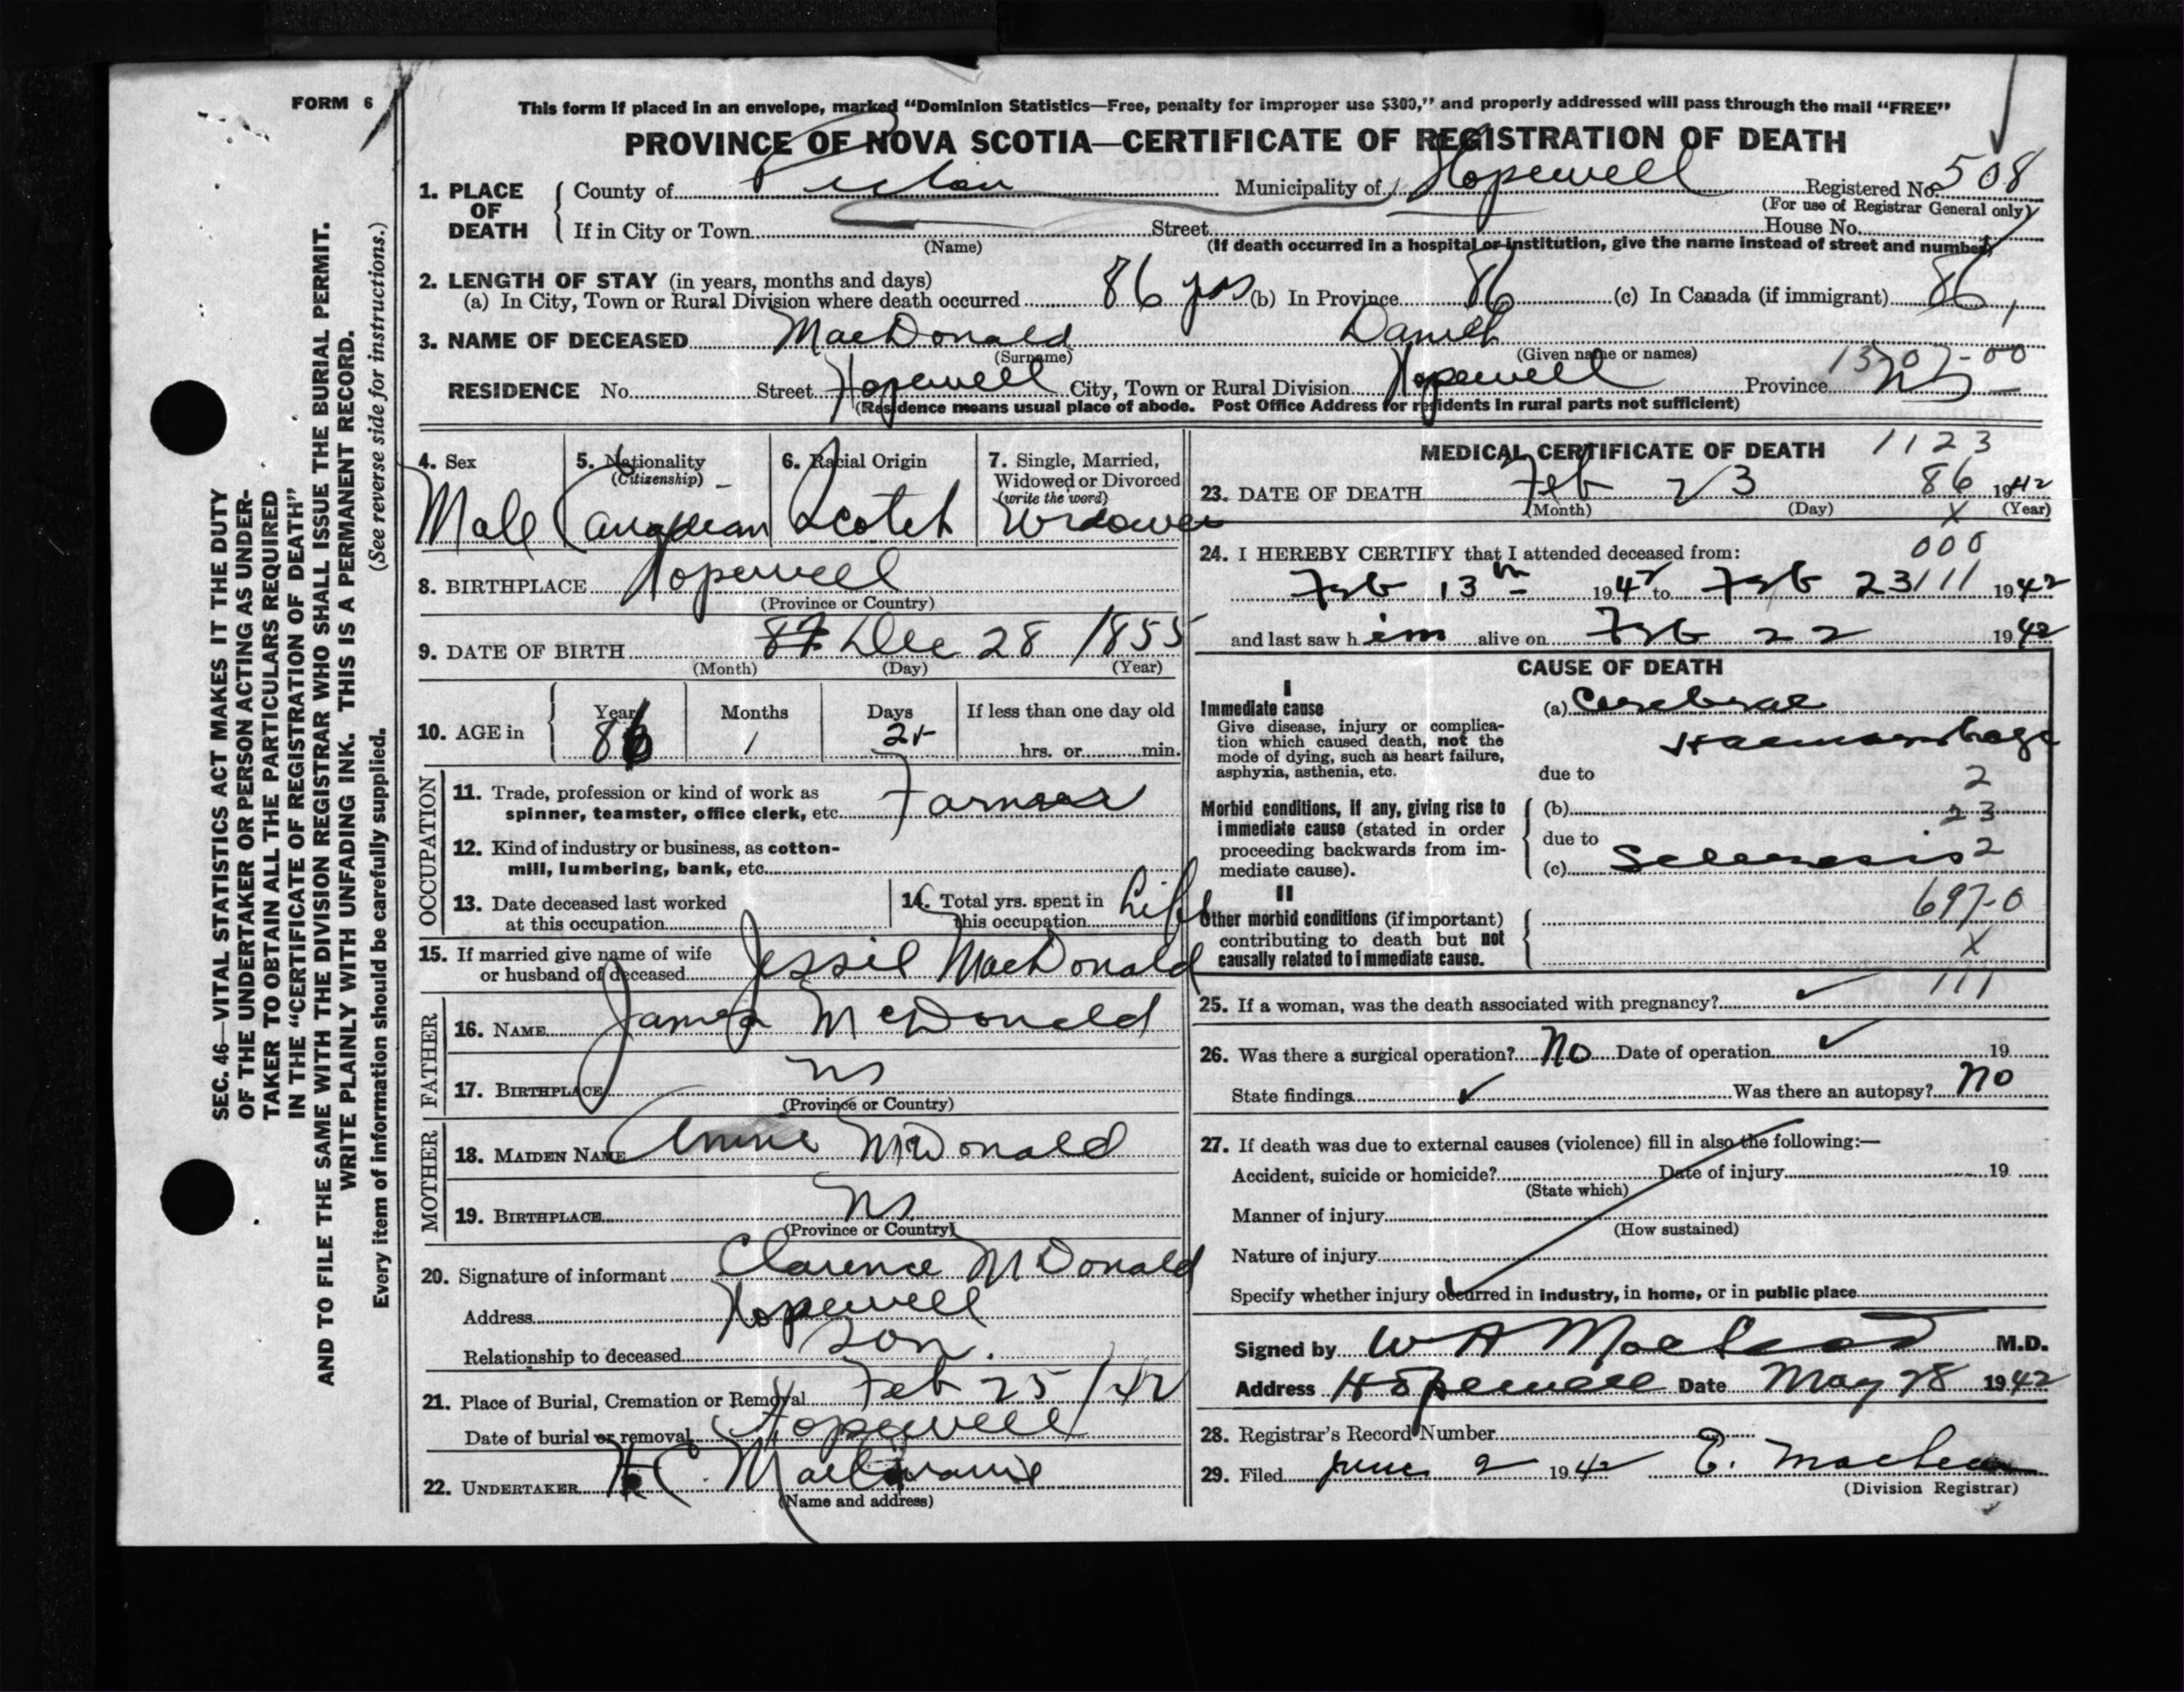 FORM 6
This form if placed in an envelope, marked “Dominion Statistics—Free, penalty for improper use $300,” and properly addressed will pass through the mail “FREE”
PROVINCE OF NOVA SCOTIA—CERTIFICATE OF REGISTRATION OF DEATH
1. PLACE OF DEATH { County of Pictou Municipality of Hopewell Registered No. 508
(For use of Registrar General only)
If in City or Town Street House No.
(Name) (If death occurred in a hospital or institution, give the name instead of street and number)
2. LENGTH OF STAY (in years, months and days)
(a) In City, Town or Rural Division where death occurred 86 yrs (b) In Province 86 (c) In Canada (if immigrant) 86
3. NAME OF DECEASED MacDonald Daniel
(Surname) (Given name or names) 1307-00
RESIDENCE No. Street Hopewell City, Town or Rural Division Hopewell Province NS
(Residence means usual place of abode. Post Office Address for residents in rural parts not sufficient)
4. Sex
Male
5. Nationality
(Citizenship)
Canadian
6. Racial Origin
Scotch
7. Single, Married,
Widowed or Divorced
(write the word)
Widower
8. BIRTHPLACE Hopewell
(Province or Country)
9. DATE OF BIRTH Dec 28 1855
(Month) (Day) (Year)
10. AGE in { Years Months Days If less than one day old
86 1 25 hrs. or min.
OCCUPATION
11. Trade, profession or kind of work as
spinner, teamster, office clerk, etc. Farmer
12. Kind of industry or business, as cotton-
mill, lumbering, bank, etc.
13. Date deceased last worked
at this occupation
14. Total yrs. spent in
this occupation Life
15. If married give name of wife
or husband of deceased Jessie MacDonald
FATHER
16. NAME James McDonald
17. BIRTHPLACE NS
(Province or Country)
MOTHER
18. MAIDEN NAME Annie McDonald
19. BIRTHPLACE NS
(Province or Country)
20. Signature of informant Clarence McDonald
Address Hopewell
Relationship to deceased Son.
21. Place of Burial, Cremation or Removal Feb 25/42
Date of burial or removal Hopewell
22. UNDERTAKER H C.
(Name and address)
MEDICAL CERTIFICATE OF DEATH 1123
23. DATE OF DEATH Feb 23 86 1942
(Month) (Day) X (Year)
24. I HEREBY CERTIFY that I attended deceased from: 000
Feb 13th 1942 to Feb 23 111 1942
and last saw him alive on Feb 22 1942
CAUSE OF DEATH
I
Immediate cause
Give disease, injury or complica-
tion which caused death, not the
mode of dying, such as heart failure,
asphyxia, asthenia, etc.
(a) Cerebral
Haemorrhage
due to 2
Morbid conditions, if any, giving rise to
immediate cause (stated in order
proceeding backwards from im-
mediate cause).
(b) 23
due to
(c) Sclerosis 2
II
Other morbid conditions (if important)
contributing to death but not
causally related to immediate cause.
697-0
X
25. If a woman, was the death associated with pregnancy? 111
26. Was there a surgical operation? No Date of operation 19
State findings Was there an autopsy? No
27. If death was due to external causes (violence) fill in also the following:—
Accident, suicide or homicide? Date of injury 19
(State which)
Manner of injury
(How sustained)
Nature of injury
Specify whether injury occurred in industry, in home, or in public place
Signed by W A MacLeod M.D.
Address Hopewell Date May 28 1942
28. Registrar's Record Number
29. Filed June 2 1942 E. MacLean
(Division Registrar)
SEC. 46—VITAL STATISTICS ACT MAKES IT THE DUTY
OF THE UNDERTAKER OR PERSON ACTING AS UNDER-
TAKER TO OBTAIN ALL THE PARTICULARS REQUIRED
IN THE “CERTIFICATE OF REGISTRATION OF DEATH”
AND TO FILE THE SAME WITH THE DIVISION REGISTRAR WHO SHALL ISSUE THE BURIAL PERMIT.
WRITE PLAINLY WITH UNFADING INK. THIS IS A PERMANENT RECORD.
Every item of information should be carefully supplied. (See reverse side for instructions.)